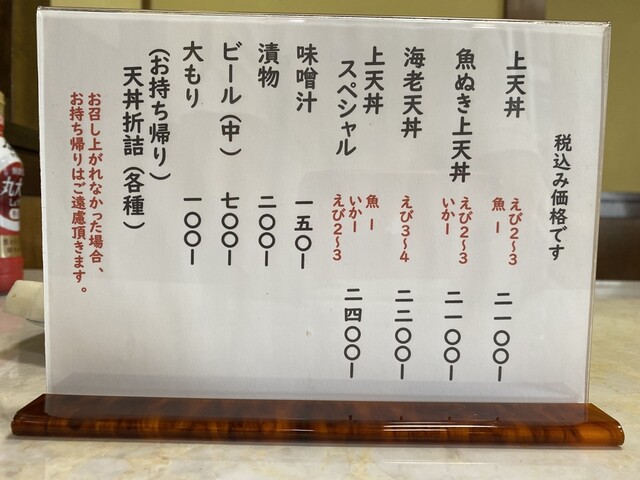 税込み価格です
上天丼
えび2〜3
魚ー
二一〇〇ー
魚ぬき上天丼
えび2〜3
いかー
二一〇〇ー
海老天丼
えび3〜4
二二〇〇ー
上天丼
スペシャル
魚ー
いかー
えび2〜3
二四〇〇ー
味噌汁
一五〇ー
漬物
二〇〇ー
ビール(中)
七〇〇ー
大もり
一〇〇ー
(お持ち帰り)
天丼折詰(各種)
お召し上がれなかった場合、
お持ち帰りはご遠慮頂きます。